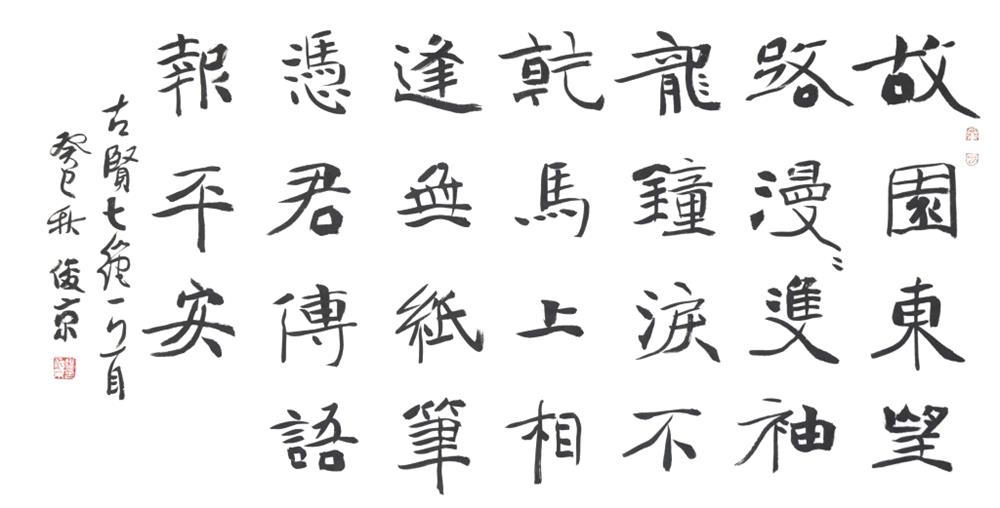 故園東望
路漫〻雙袖
龍鐘淚不
乾馬上相
逢無紙筆
憑君傳語
報平安
古賢七絶一首
癸巳秋 俊京